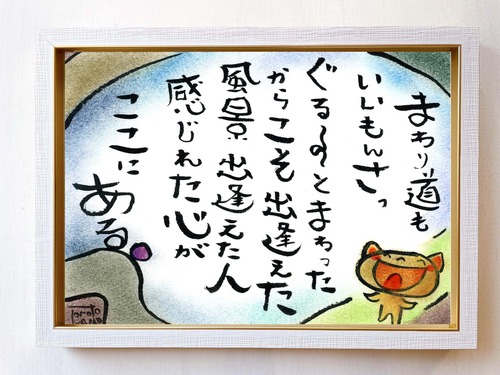 まわり道も
いいもんさっ
ぐる〜っとまわった
からこそ出逢えた
風景 出逢えた人
感じれた心が
ここに
ある